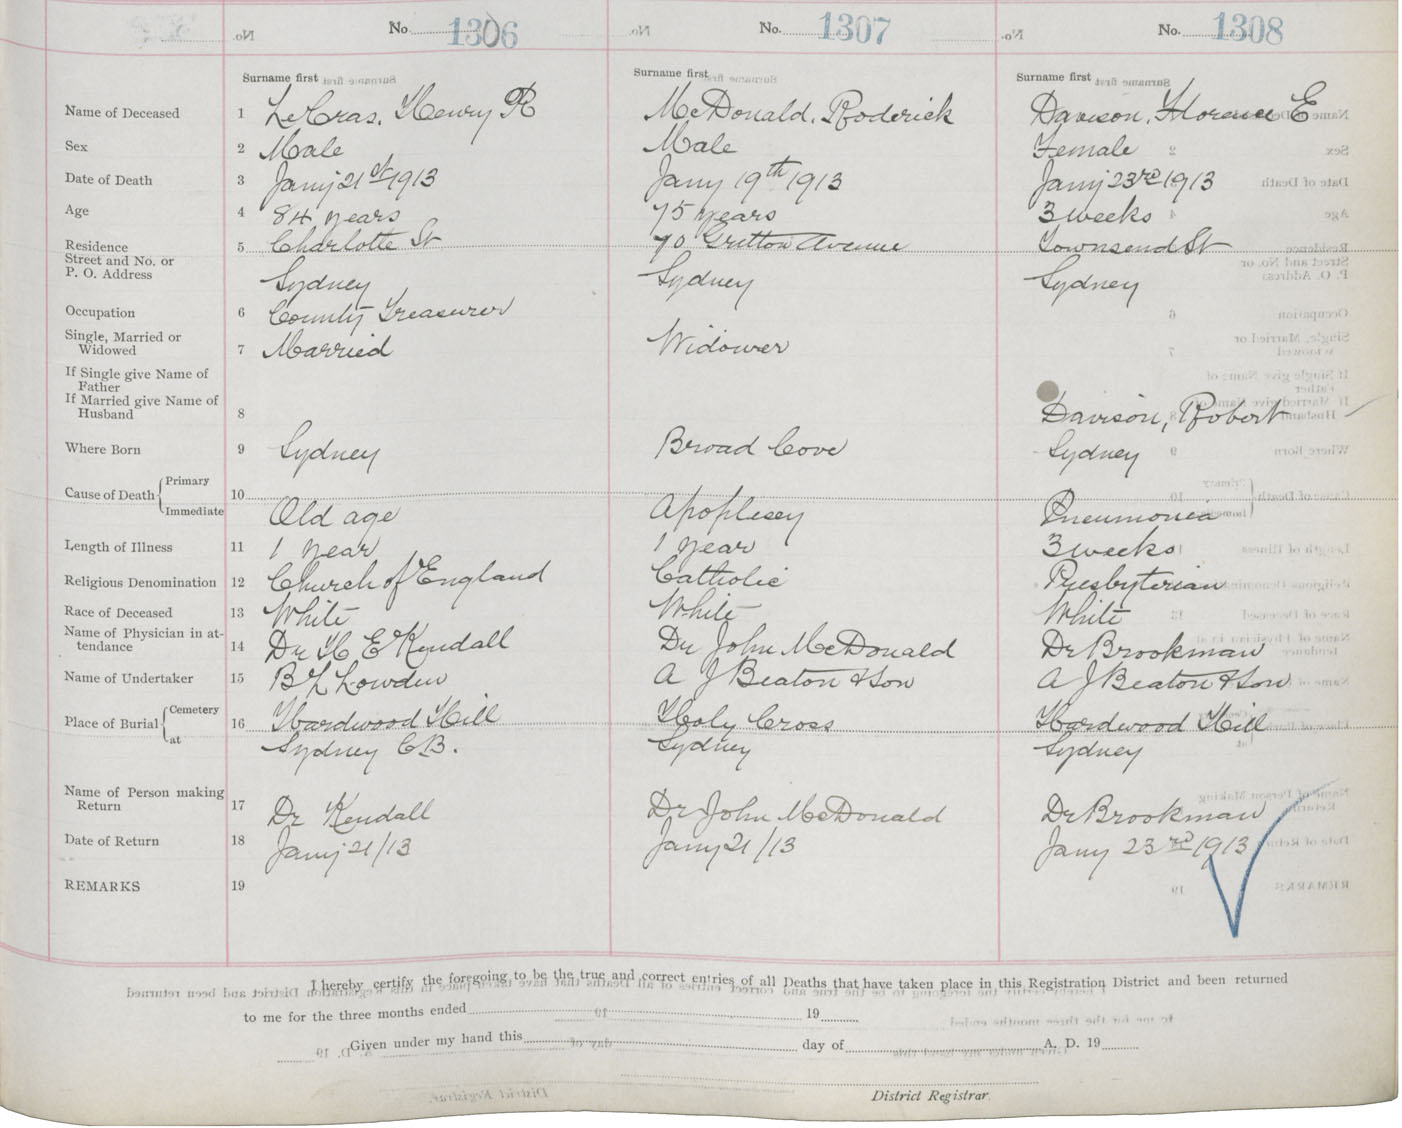 No. 1306 No. 1307 No. 1308
Surname first Surname first Surname first
Name of Deceased 1 LeCras, Henry R McDonald, Roderick Davison, Florence E
Sex 2 Male Male Female
Date of Death 3 Jany 21st 1913 Jany 19th 1913 Jany 23rd 1913
Age 4 84 years 75 years 3 weeks
Residence 5 Charlotte St 70 Avenue Townsend St
Street and No. or
P. O. Address Sydney Sydney Sydney
Occupation 6 County Treasurer
Single, Married or
Widowed 7 Married Widower
If Single give Name of
Father
If Married give Name of
Husband 8 Davison, Robert
Where Born 9 Sydney Broad Cove Sydney
Cause of Death Primary 10
Immediate Old age Apoplexy Pneumonia
Length of Illness 11 1 year 1 year 3 weeks
Religious Denomination 12 Church of England Catholic Presbyterian
Race of Deceased 13 White White White
Name of Physician in at-
tendance 14 Dr H E Kendall Dr John McDonald Dr Brookman
Name of Undertaker 15 B L Lowden A J Beaton & Son A J Beaton & Son
Place of Burial Cemetery 16 Hardwood Hill Holy Cross Hardwood Hill
at Sydney C.B. Sydney Sydney
Name of Person making
Return 17 Dr Kendall Dr John McDonald Dr Brookman
Date of Return 18 Jany 21/13 Jany 21/13 Jany 23rd 1913
REMARKS 19
I hereby certify the foregoing to be the true and correct entries of all Deaths that have taken place in this Registration District and been returned
to me for the three months ended 19
Given under my hand this day of A. D. 19
District Registrar.